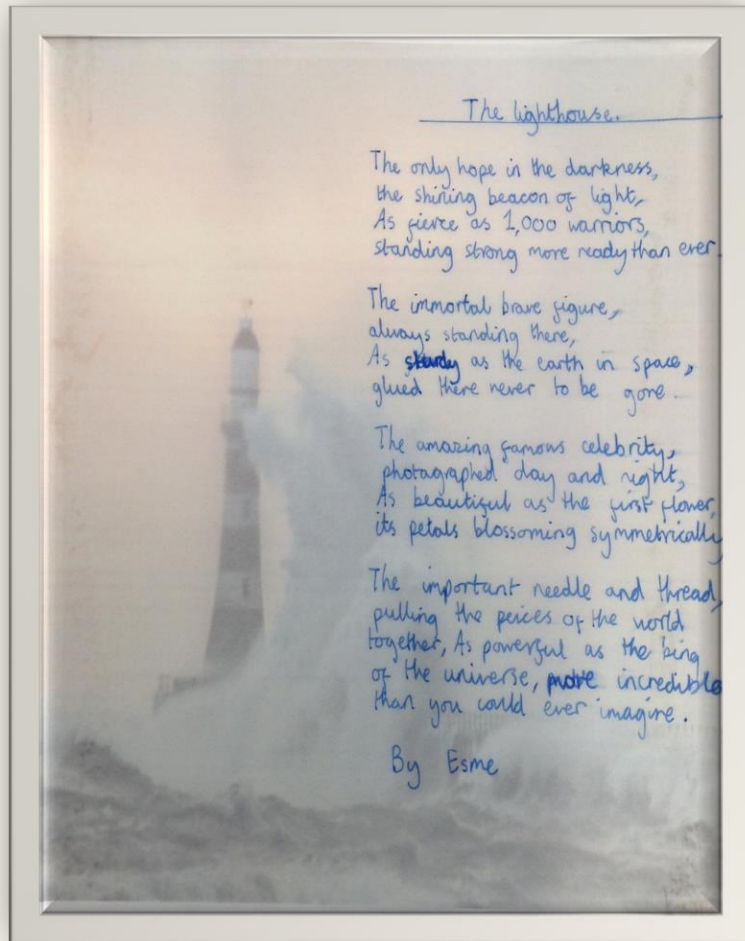 The lighthouse.
The only hope in the darkness,
the shining beacon of light,
As fierce as 1,000 warriors,
standing strong more ready than ever.
The immortal brave figure,
always standing there,
As sturdy as the earth in space,
glued there never to be gone.
The amazing famous celebrity,
photagraphed day and night,
As beautiful as the first flower,
its petals blossoming symmetrically,
The important needle and thread,
pulling the peices of the world
together, As powerful as the
of the universe, more incredible
than you could ever imagine.
By Esme